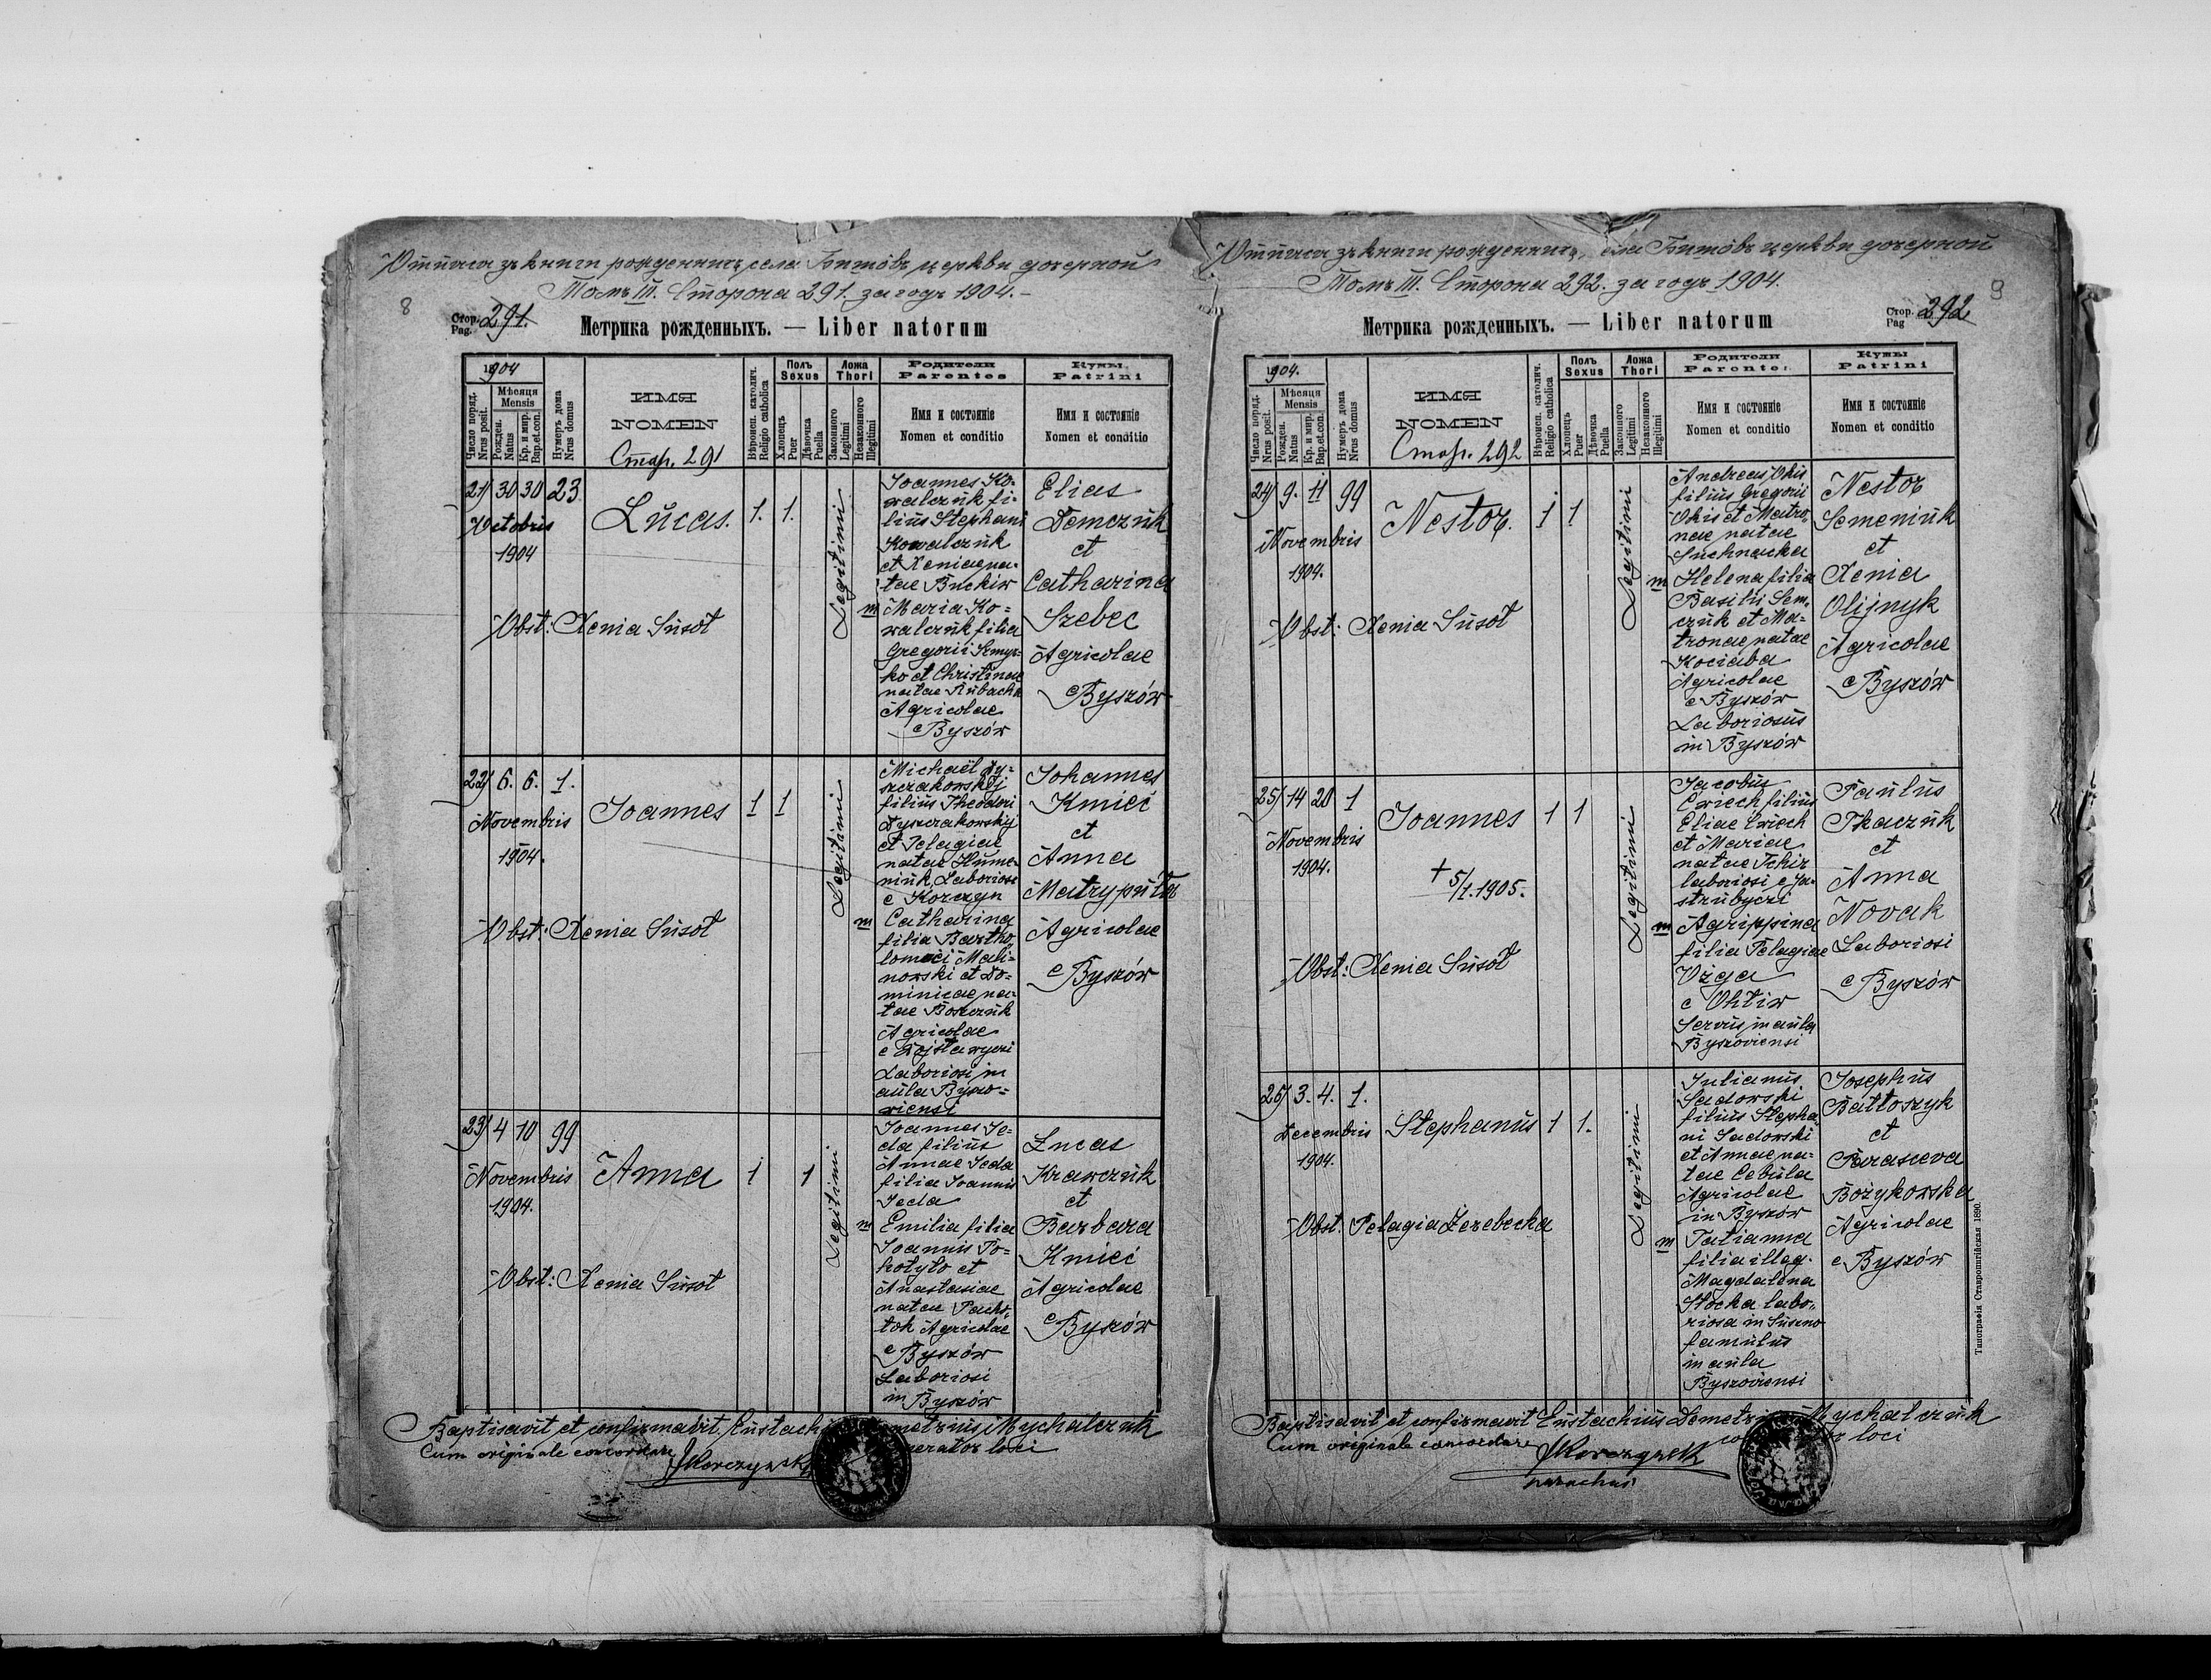 8
Отпись зъ книги рожденныхъ села Бишôвъ церкви дочерной
Томъ III. Сторона 291. за годъ 1904.-
Стор. Pag. 291.
Метрика рожденныхъ. — Liber natorum
1904
Число поряд. Nrus posit.
Мѣсяця Mensis
Рожден. Natus
Кр. и мир. Bap.et.con.
Нумеръ дома Nrus domus
ИМЯ
NOMEN
Стор. 291
Вѣроисп. католич. Religio catholica
Полъ Sexus
Хлопець Puer
Дѣвочка Puella
Ложа Thori
Законного Legitimi
Незаконного Illegitimi
Родители Parentes
Имя и состояніе
Nomen et conditio
Кумы Patrini
Имя и состояніе
Nomen et conditio
21/ 30 30 23
Octobris
1904
Lucas. 1. 1.
Legitimi
Obst: Xenia Susoł
Joannes Ko-
walczuk fi-
lius Stephani
Kowalczuk
et Xeniae na-
tae Buckiw
m Maria Ko=
walczuk filia
Gregorii
ko et Christinae
natae
Agricolae
e Byszów
Elias
Demczuk
et
Catharina
Szebec
Agricolae
e Byszów
22/ 6. 6. 1.
Novembris
1904.
Joannes 1 1
Legitimi
Obst: Xenia Susoł
Michaël Dy-
szczakowskij
filius Theodori
Dyszczakowskij
et Pelagiae
natae Hume-
niuk Laboriosi
e Korczyn
m Catharina
filia Bartho-
lomaei Mali-
nowski et Do-
minicae na-
tae Boszczuk
Agricolae
e
Laboriosi in
aula Byszo=
viensi
Johannes
Kmieć
et
Anna
Matryputa
Agricolae
e Byszów
23/ 4 10 99
Novembris
1904.
Anna 1 1
Legitimi
Obst: Xenia Susoł
Joannes Je-
da filius
Annae Jeda
filia Joannis
Jeda
m Emilia filia
Joannis Po-
kotyło et
Anastasiae
natae
Agricolae
e Byszów
Laboriosi
in Byszów
Lucas
Krawczuk
et
Barbara
Kmieć
Agricolae
e Byszów
Baptisavit et confirmavit. Eustachius Demetrius Mychalczuk
cooperator loci
Cum originale concordare
JKorczyński
9
Отпись зъ книги рожденныхъ села Бишôвъ церкви дочерной
Томъ III. Сторона 292. за годъ 1904.
Стор. Pag 292
Метрика рожденныхъ. — Liber natorum
1904.
Число поряд. Nrus posit.
Мѣсяця Mensis
Рожден. Natus
Кр. и мир. Bap.et.con.
Нумеръ дома Nrus domus
ИМЯ
NOMEN
Стор. 292
Вѣроисп. католич. Religio catholica
Полъ Sexus
Хлопець Puer
Дѣвочка Puella
Ложа Thori
Законного Legitimi
Незаконного Illegitimi
Родители Parentes
Имя и состояніе
Nomen et conditio
Кумы Patrini
Имя и состояніе
Nomen et conditio
24/ 9. 11 99
Novembris
1904.
Nestor. 1 1
Legitimi
Obst: Xenia Susoł
Andreas Okis
filius Gregorii
Okis et Matro-
nae natae
Suchnacka
m Helena filia
Basilii Sem-
czuk et Ma-
tronae natae
Kociaba
Agricolae
e Byszów
Laboriosus
in Byszów
Nestor
Semeniuk
et
Xenia
Olijnyk
Agricolae
e Byszów
25/ 14 20 1
Novembris
1904.
Joannes 1 1
+ 5/1.1905.
Legitimi
Obst: Xenia Susoł
Jacobus
Cwiech filius
Eliae Cwiech
et Mariae
natae
laboriosi e Ja-
strubyczi
m Agrippina
filia Pelagiae
Ożga
e Ohtiw
Servus in aula
Byszoviensi
Paulus
Tkaczuk
et
Anna
Novak
Laboriosi
e Byszów
26/ 3. 4. 1.
Decembris
1904.
Stephanus 1 1.
Legitimi
Obst: Pelagia Zerebecka
Julianus
Sadowski
filius Stepha-
ni Sadowski
et Annae na-
tae Cebula
Agricolae
in Byszów
m Tatianna
filia illeg.
Magdalena
Stocka labo-
riosa in Suszno
famulus
in aula
Byszoviensi
Josephus
Bałtoszyk
et
Parasceva
Bożykowska
Agricolae
e Byszów
Baptisavit et confirmavit Eustachius Demetrius Mychalczuk
cooperator loci
Cum originale concordare
JKorczyński
parochus
Типографія Ставропигійская 1890.